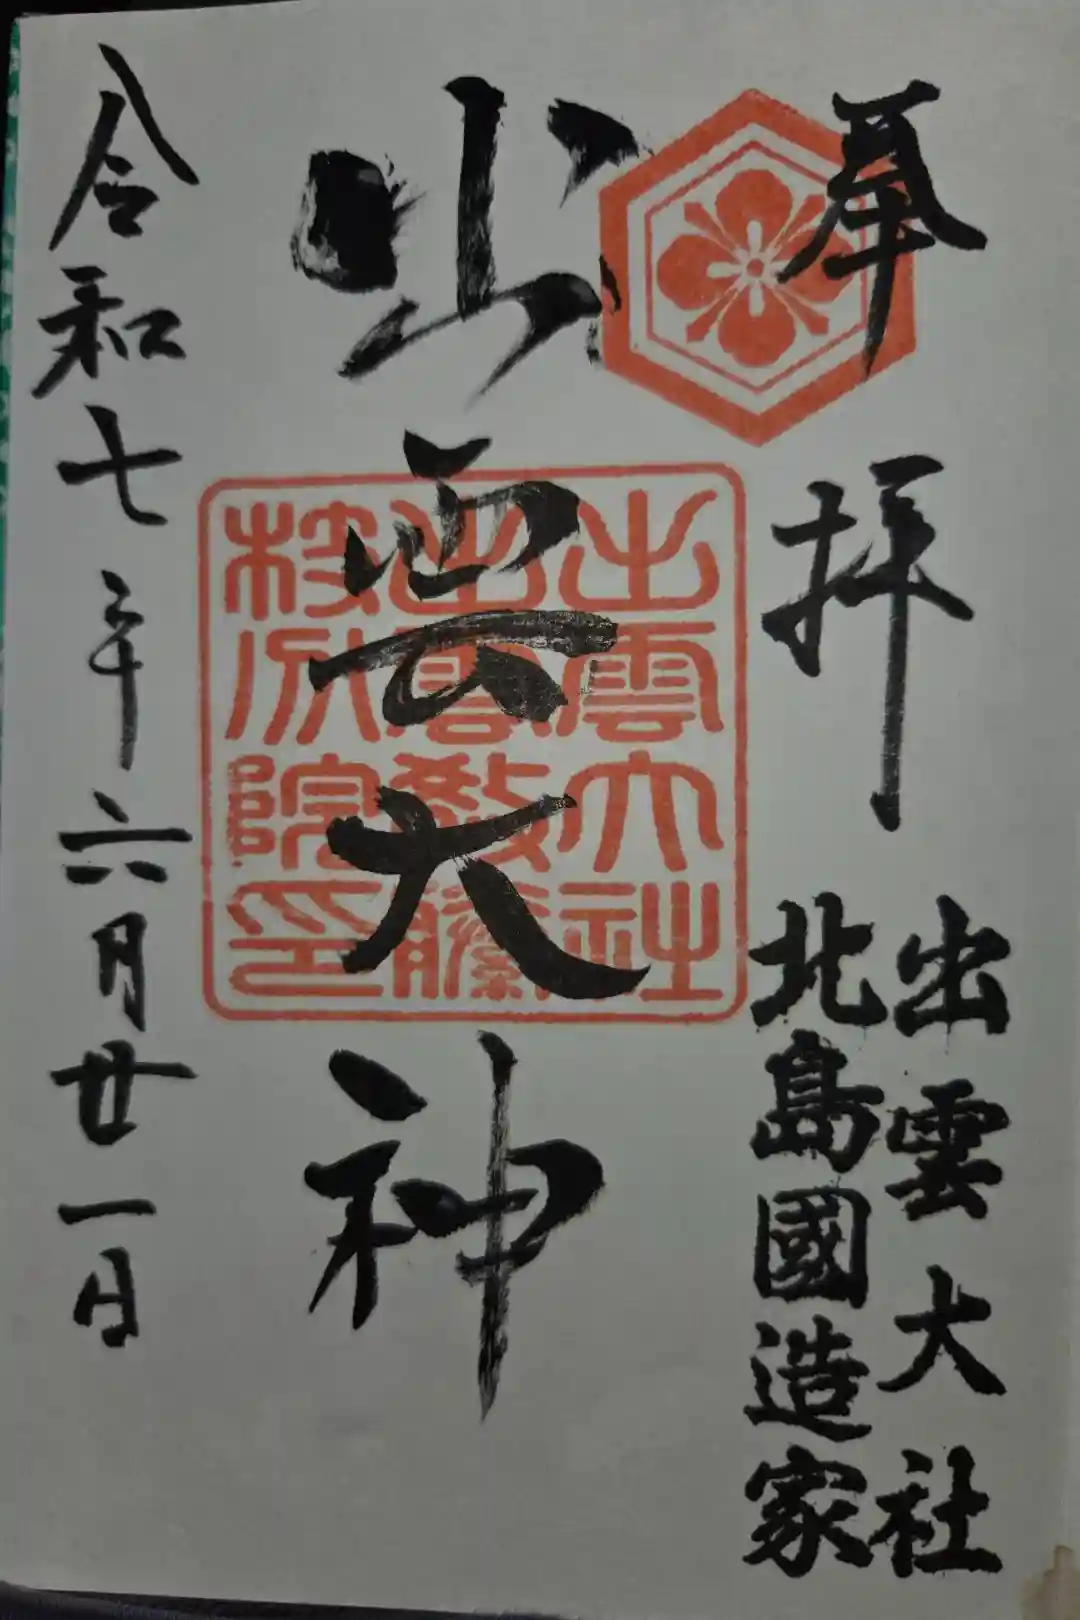 奉拝
出雲大社
北島國造家
出雲大神
出雲大社
出雲教
院印
令和七年六月廿一日